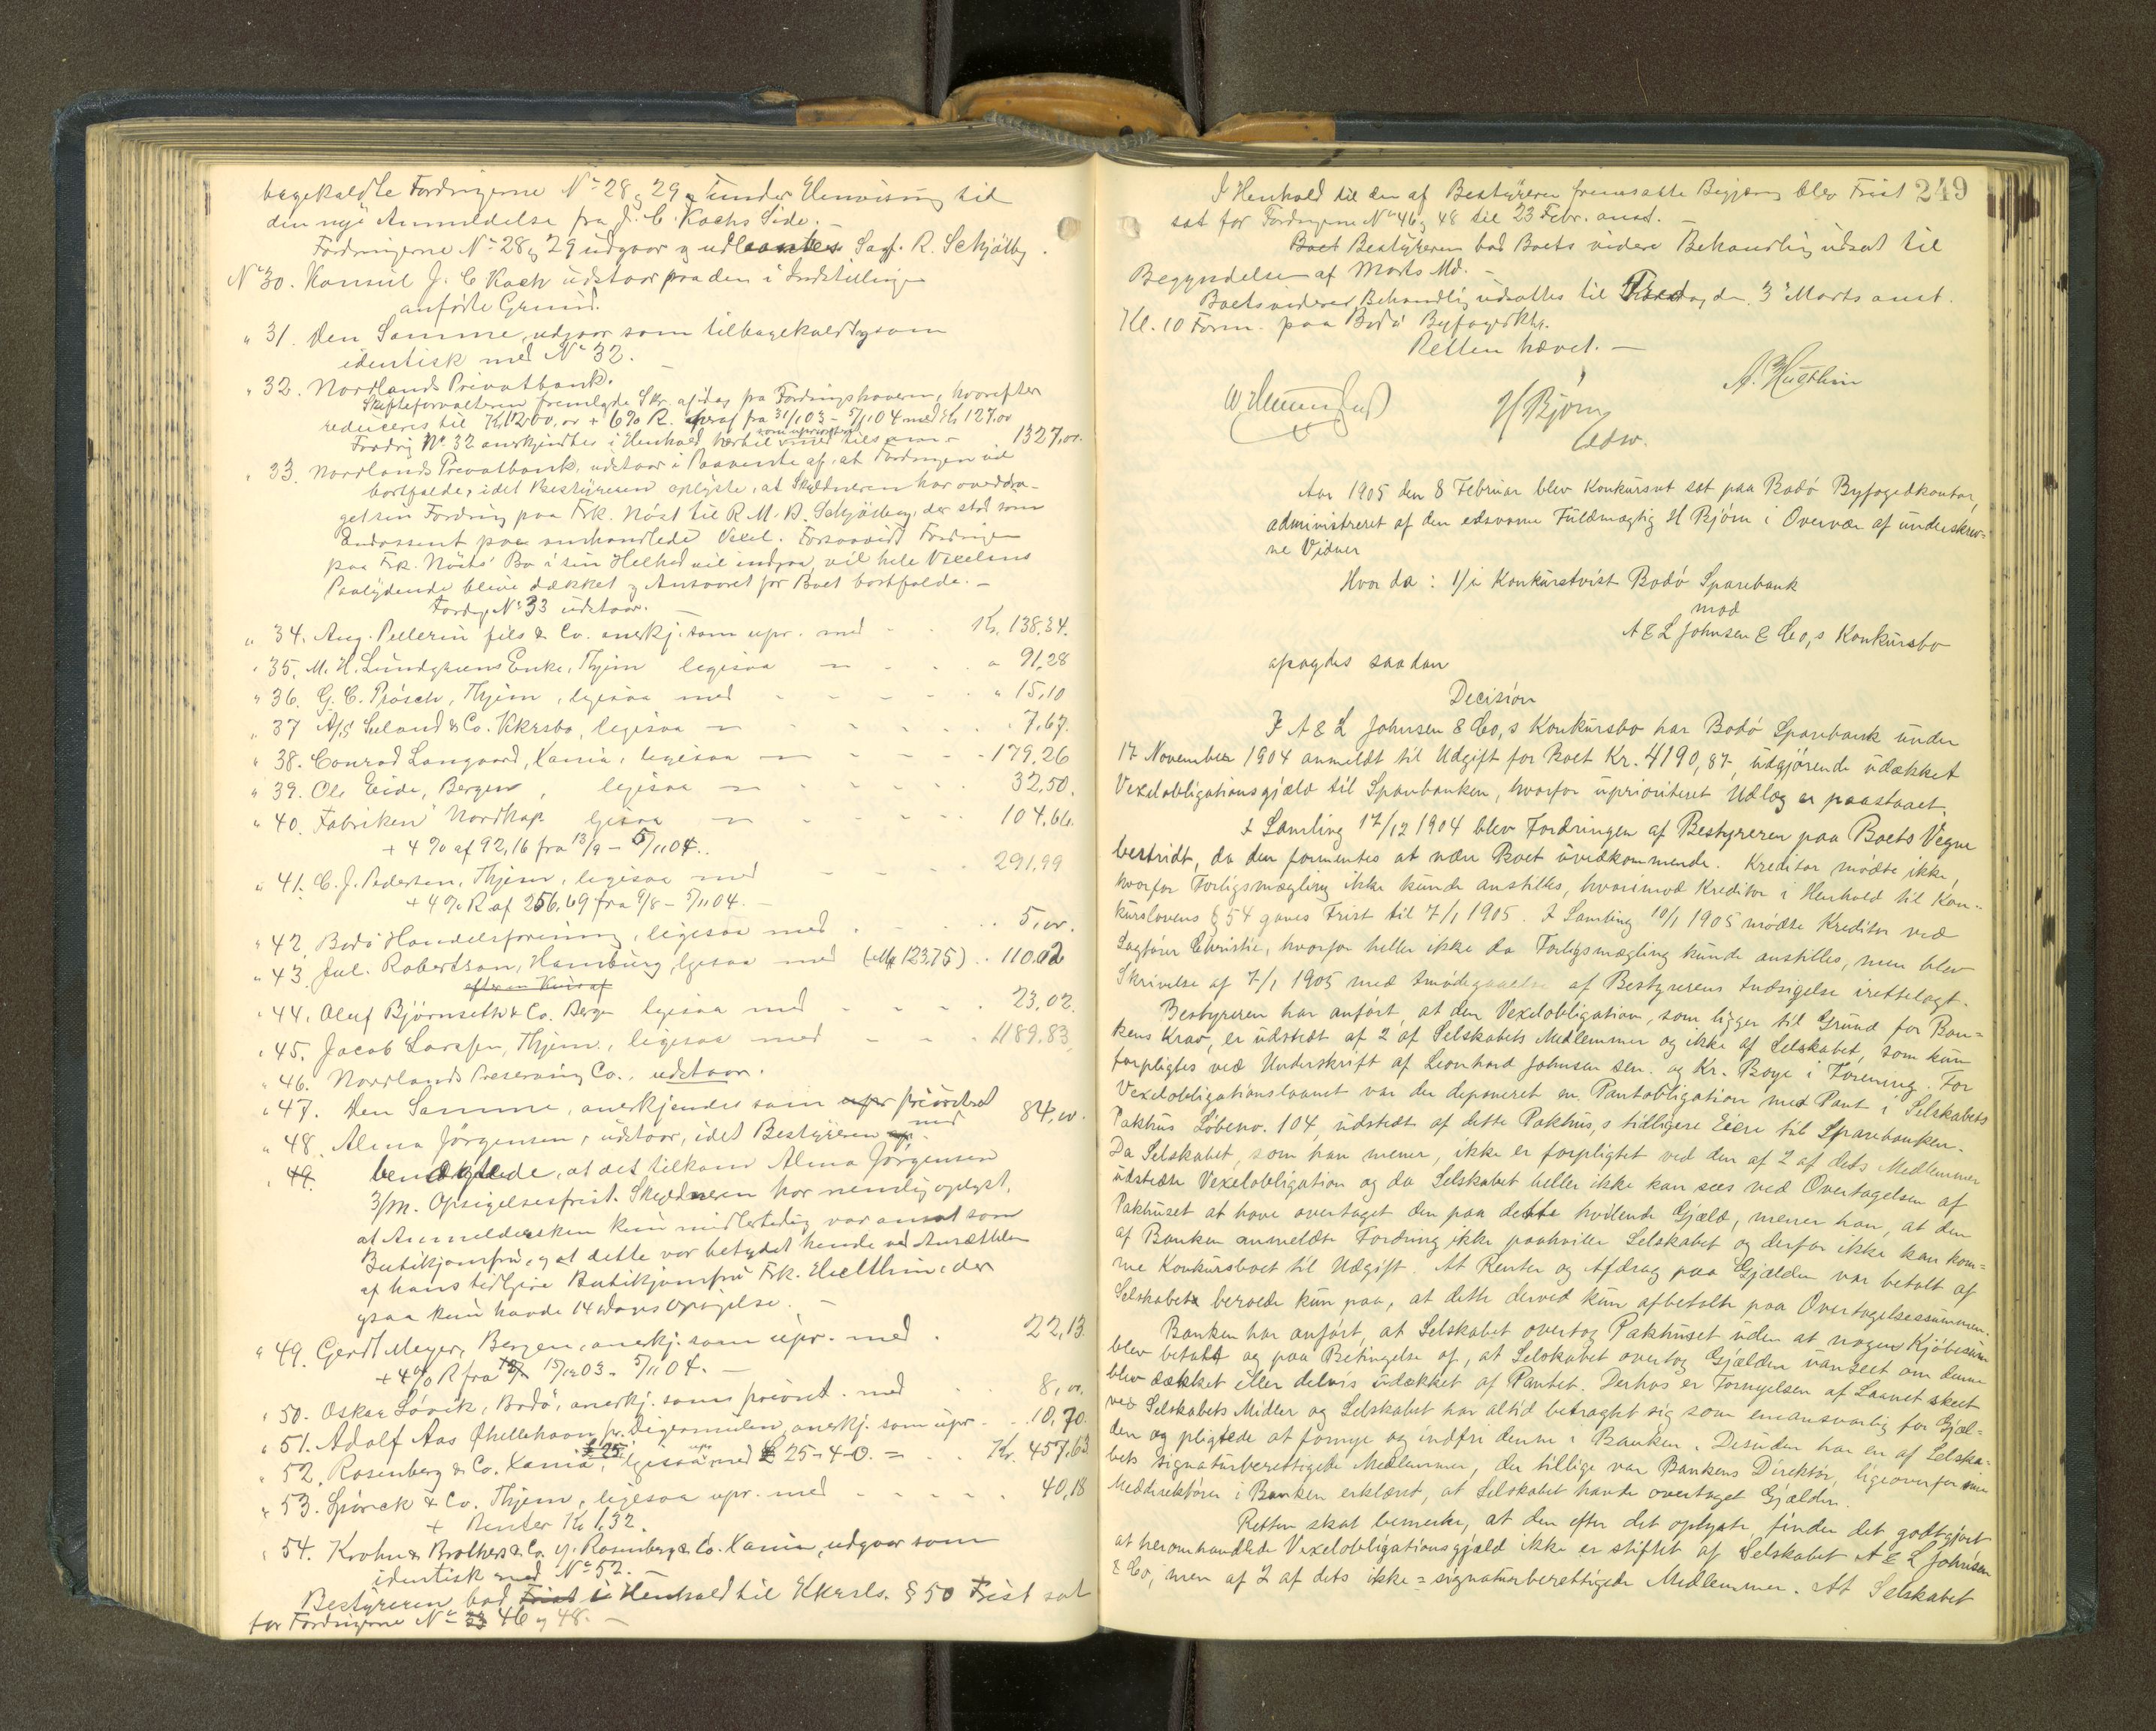 bagekaldte Fordringerne No 28 og 29 under Henvisning til
den nye Anmeldelse fra J. C. Kochs Side.
Fordringerne No 28 og 29 udgaar og Sagf. R. Schjölby.
No 30. Konsul J. C. Koch udstaar paa den i Indstillingen
anförte Grund.
" 31. Den Samme, udgaar som tilbagekaldt og som
identisk med No 32.
" 32. Nordlands Privatbank.
Skifteforvalteren fremlagde Skr. af idag fra Fordringshaveren, hvorefter
reduceres til Kr. 1200,00 + 6% R. heraf fra 31/1 03 - 5/11 04 med Kr. 127,00
Fordring No 32 anerkjendtes i Henhold hertil som uprioritert med tils. 1327,00.
" 33. Nordlands Privatbank, udstaar i Paavente af, at Fordringen vil
bortfalde, idet Bestyreren oplyste, at Skyldneren har overdra-
get sin Fordring paa Frk. Nöst til R. M. B. Schjölberg, der stod som
Endossent paa omhandlede Vexel. Forsaavidt Fordringen
paa Frk. Nösts Bo i sin Helhed vil indgaa, vil hele Vexelens
Paalydende blive dækket og Ansvaret for Boet bortfalde. -
Fordrg. No 33 udstaar.
" 34. Aug. Pellerin fils & Co. anerkj. som upr. med Kr. 138,34.
" 35. M. H. Lundgreens Enke, Thjem ligesaa " 91,28
" 36. G. C. Prösch, Thjem, ligesaa med " 15,10
" 37 A/S & Co. ligesaa 7,67.
" 38. Conrad Langaard, Kania, ligesaa 179,26
" 39. Ole Eide, Bergen, ligesaa 32,50.
" 40. Fabriken Nordkap ligesaa 104,66.
+ 4% af 92,16 fra 13/9 - 5/11 04.
" 41. C. J. Pedersen, Thjem, ligesaa med 291,99
+ 4% R af 256,69 fra 9/8 - 5/11 04. -
" 42. Bodö Handelsforening, ligesaa med 5,00.
" 43. Jul. Robertson, Hamburg, ligesaa med (Mk 123,75) 110,02
" 44. Oluf Björnseth & Co. Bergen ligesaa med 23,02.
" 45. Jacob Larssen, Thjem., ligesaa med 1189,83.
" 46. Nordlands Preserving Co., udstaar.
" 47. Den Samme, anerkjendes som upr prioritert med 84,00.
" 48. Alma Jörgensen, udstaar, idet Bestyreren
" 49. benægtede, at det tilkom Alma Jörgensen
3/m. Opsigelsesfrist. Skyldneren har nemlig oplyst,
at Anmeldersken kun midlertidig var ansat som
Butikjomfru, og at dette var betydet hende ved Ansættelsen
af hans tidligere Butikjomfru Frk. der
ogsaa kun havde 14 Dages Opsigelse. -
" 49. Gerdt Meyer, Bergen, anerkj. som upr. med 22,13.
+ 4% R fra 15/12 03 - 5/11 04. -
" 50. Oskar Lövik, Bodö, anerkj. som priorit. med 8,00.
" 51. Adolf Aas Öhellehavn pr. Digermulen, anerkj. som upr. 10,70.
" 52. Rosenberg & Co. Kania, ligesaa upr. med £ 25-4-0. = Kr. 457,63
" 53. Spörck & Co. Thjem, ligesaa upr. med 40,18
+ Renter Kr 1,32.
" 54. Krohn & Brothers & Co. v. Rosenberg & Co. Kania, udgaar som
identisk med No 52.
Bestyreren bad Frist i Henhold til Kkursl. § 50 Frist sat
for Fordringerne No 33 46 og 48. -
249
I Henhold til den af Bestyreren fremsatte Begjæring blev Frist
sat for Fordringerne No 46 og 48 til 23 Febr. anst. -
Boet Bestyreren bad Boets videre Behandling udsat til
Begyndelsen af Marts Md. -
Boets videre Behandling udsattes til Fredag den 3 Marts anst.
Kl. 10 Form. paa Bodö Byfogedktr.
Retten hævet. -
H Bjørn
edsv.
Aar 1905 den 8 Februar blev Konkursret sat paa Bodö Byfogedkontor,
administreret af den edsvorne Fuldmægtig H Bjørn i Overvær af underskrev-
ne Vidner
Hvor da: 1/ i Konkurstvist Bodö Sparebank
mod
A & L Johnsen & Co,s Konkursbo
afsagdes saadan
Decision
I A & L Johnsen & Co,s Konkursbo har Bodö Sparebank under
17 November 1904 anmeldt til Udgift for Boet Kr. 4190,87, udgjörende udækket
Vexelobligationsgjæld til Sparebanken, hvorfor uprioriteret Udlæg er paastaaet.
I Samling 17/12 1904 blev Fordringen af Bestyreren paa Boets Vegne
bestridt, da den formentes at være Boet uvedkommende. Kreditor mödte ikke,
hvorfor Forligsmægling ikke kunde anstilles, hvorimod Kreditor i Henhold til Kon-
kurslovens § 54 gaves Frist til 7/1 1905. I Samling 10/1 1905 mödte Kreditor ved
Sagförer Christie, hvorfor heller ikke da Forligsmægling kunde anstilles, men blev
Skrivelse af 7/1 1905 med Imödegaaelse af Bestyrerens Indsigelse irettelagt.
Bestyreren har anfört, at den Vexelobligation, som ligger til Grund for Ban-
kens Krav, er udstedt af 2 af Selskabets Medlemmer og ikke af Selskabet, som kun
forpligtes ved Underskrift af Leonhard Johnsen sen. og Kr. Boye i Forening. For
Vexelobligationslaanet var der deponeret en Pantobligation med Pant i Selskabets
Pakhus Löbeno. 104, udstedt af dette Pakhus,s tidligere Eiere til Sparebanken.
Da Selskabet, som han mener, ikke er forpligtet ved den af 2 af dets Medlemmer
udstedte Vexelobligation og da Selskabet heller ikke kan sees ved Overtagelsen af
Pakhuset at have overtaget den paa dette hvilende Gjæld, mener han, at den
af Banken anmeldte Fordring ikke paahviler Selskabet og derfor ikke kan kom-
me Konkursboet til Udgift. At Renter og Afdrag paa Gjælden var betalt af
Selskabet beroede kun paa, at dette derved kun afbetalte paa Overtagelsessummen.
Banken har anfört, at Selskabet overtog Pakhuset uden at nogen Kjöbesum
blev betalt og paa Betingelse af, at Selskabet overtog Gjælden uanseet om denne
blev dækket eller delvis udækket af Pantet. Derhos er Fornyelsen af Laanet skeet
ved Selskabets Midler og Selskabet har altid betragtet sig som eneansvarlig for Gjæl-
den og pligtede at fornye og indfri denne i Banken. Desuden har en af Selska-
bets signaturberettigede Medlemmer, der tillige var Bankens Direktör, ligeoverfor sine
Meddirektörer i Banken erklæret, at Selskabet havde overtaget Gjælden.
Retten skal bemerke, at den efter det oplyste finder det godtgjort
at heromhandlede Vexelobligationsgjæld ikke er stiftet af Selskabet A & L Johnsen
& Co, men af 2 af dets ikke = signaturberettigede Medlemmer. At Selskabet